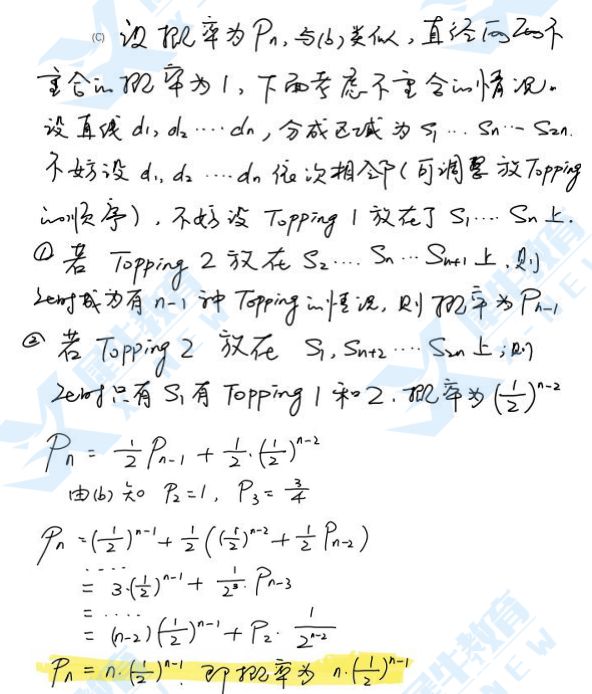 (C) 设概率为Pn,与(b)类似,直径间不
重合的概率为1,下面考虑不重合的情况.
设直线d₁,d₂……dn,分成区域为S₁…Sn…S₂n.
不妨设d₁,d₂……dn依次相邻(可调整放Topping
的顺序),不妨设Topping 1放在了S₁……Sn上.
① 若Topping 2放在S₂……Sn…Sn+1上,则
Zeus成为有n-1种Topping的情况,则概率为Pn-1
② 若Topping 2放在S₁,Sn+2……S₂n上,则
Zeus只有S₁有Topping 1和2.概率为(1/2)ⁿ⁻²
Pn = 1/2 Pn-1 + 1/2·(1/2)ⁿ⁻²
由(b)知 P₂=1, P₃=3/4
Pn = (1/2)ⁿ⁻¹ + 1/2((1/2)ⁿ⁻² + 1/2 Pn-2)
....
= 3·(1/2)ⁿ⁻¹ + 1/2³·Pn-3
= ....
= (n-2)(1/2)ⁿ⁻¹ + P₂·1/2ⁿ⁻²
Pn = n·(1/2)ⁿ⁻¹. 即概率为 n·(1/2)ⁿ⁻¹
犀牛教育
X-NEW